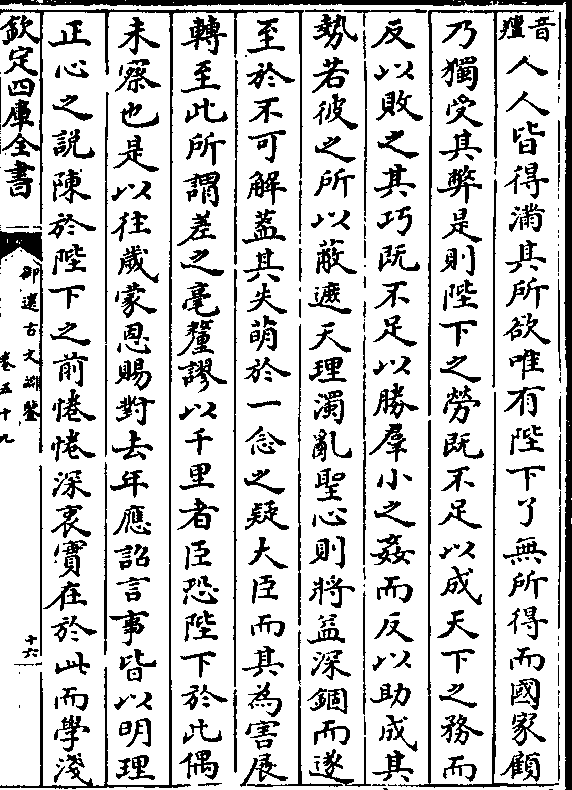 音
𤼣人人皆得滿其所欲唯有陛下了無所得而國家顧
乃獨受其弊是則陛下之勞既不足以成天下之務而
反以敗之其巧既不足以勝羣小之姦而反以助成其
勢若彼之所以蔽遮天理濁亂聖心則將益深錮而遂
至於不可解蓋其失萌於一念之疑大臣而其為害展
轉至此所謂差之毫釐謬以千里者臣恐陛下於此偶
未察也是以往歲蒙恩賜對去年應詔言事皆以明理
正心之說陳於陛下之前惓惓深衷實在於此而學淺
欽定四庫全書
御選古文淵鑒
卷五十九
十六